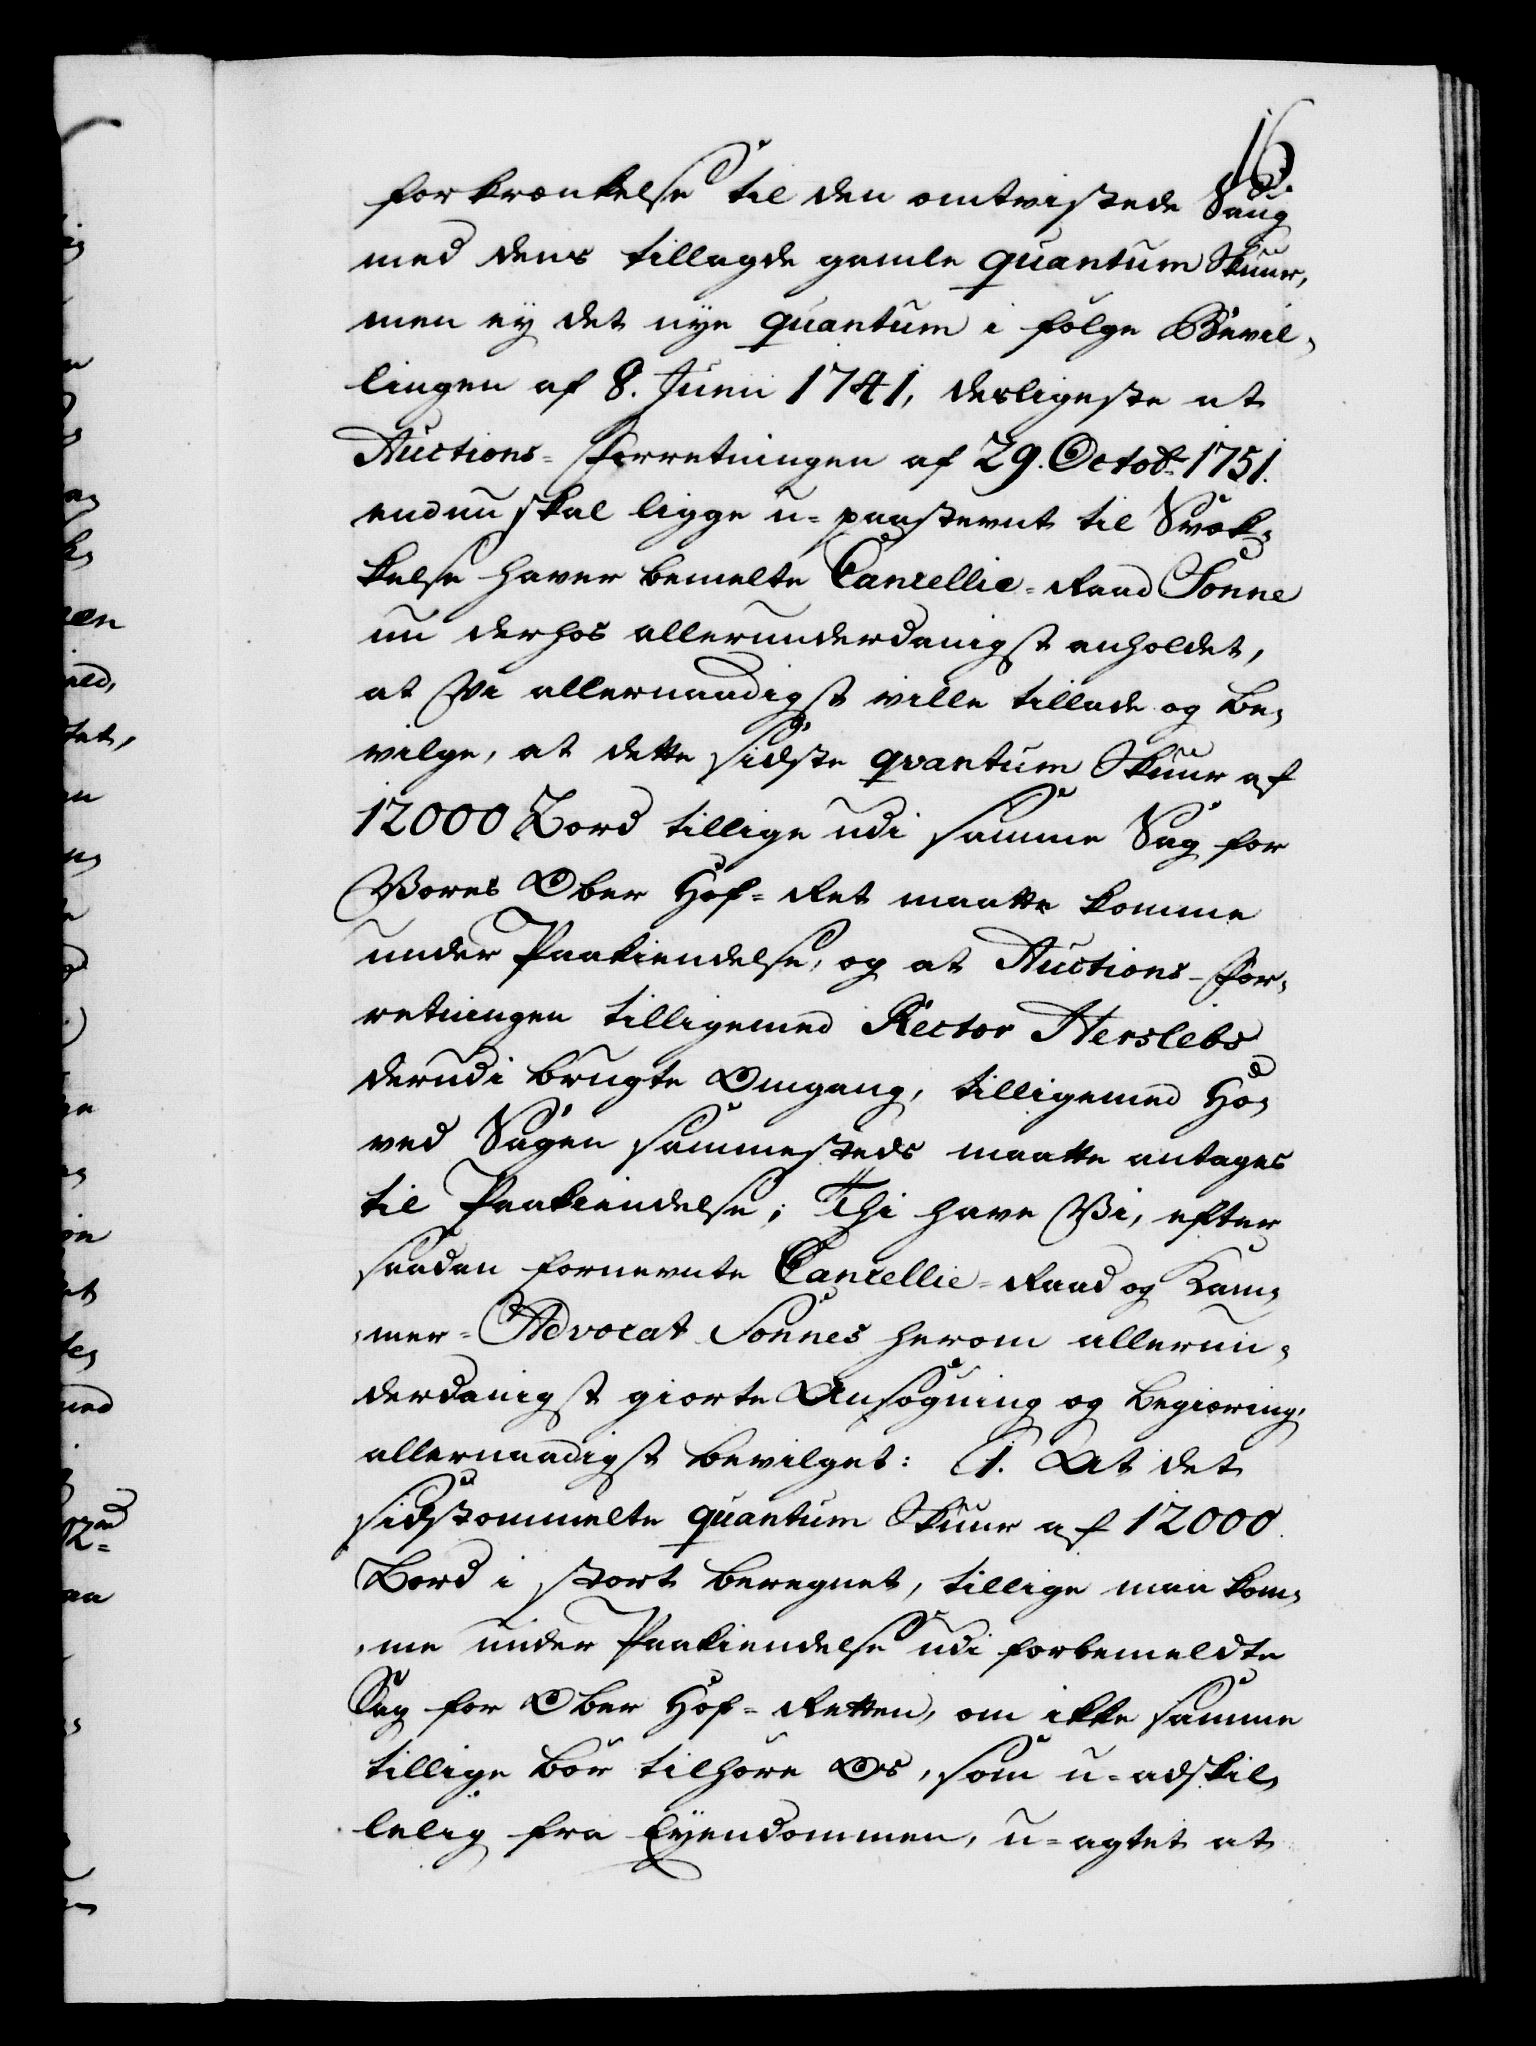 16.
forkrænkelse til den omtvistede Saug
med dens tillagde gamle quantum Skuur,
men ey det nye quantum i følge Bevil-
lingen af 8. Junii 1741, desligeste at
Auctions-Forretningen af 29. Octob. 1751.
endnu skal ligge u-paastevnt til Svæk-
kelse haver bemelte Cancellie-Raad Sonne
nu derhos allerunderdanigst anholdet,
at Vi allernaadigst ville tillade og be-
vilge, at dette sidste qvantum Skuur af
12000 Bord tillige udi samme Sag for
Vores Ober Hof-Ret maatte komme
under Paakiendelse, og at Auctions-For-
retningen tilligemed Rector Herslebs
derudi brugte Omgang, tilligemed Ho-
ved Sagen sammesteds maatte antages
til Paakiendelse; Thi have Vi, efter
saadan fornevnte Cancellie-Raad og Kam-
mer-Advocat Sonnes herom allerun-
derdanigst giorte Ansøgning og Begiæring,
allernaadigst bevilget: 1. At det
sidstommelte quantum Skuur af 12000.
Bord i stort beregnet, tillige maa kom-
me under Paakiendelse udi forbemeldte
Sag for Ober Hof-Retten, om ikke samme
tillige bør tilhøre Os, som u-adskil-
lelig fra Eyendommen, u-agtet at